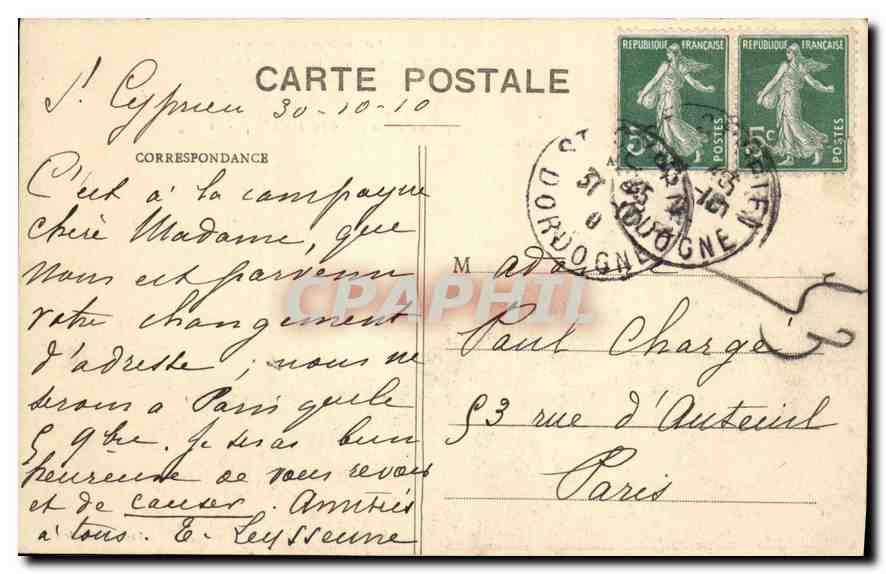 CARTE POSTALE
St Cyprien 30-10-10
CORRESPONDANCE
C'est à la campagne
chère Madame, que
nous est parvenu
votre changement
d'adresse ; nous ne
serons à Paris que le
5 9bre. Je serai bien
heureuse de vous revoir
et de causer. Amitiés
à tous. E. Leysseune
REPUBLIQUE FRANÇAISE
5c POSTES
REPUBLIQUE FRANÇAISE
5c POSTES
ST CYPRIEN
DORDOGNE
31
Madame
Paul Chargé
53 rue d'Auteuil
Paris
53
CPAPHIL